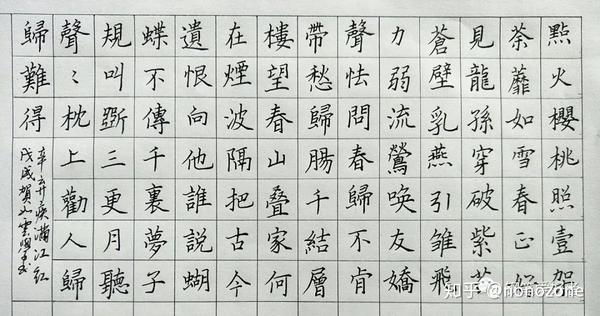 點火櫻桃照壹架
荼蘼如雪春正好
見龍孫穿破紫苔
蒼壁乳燕引雛飛
力弱流鶯喚友嬌
聲怯問春歸不肯
帶愁歸腸千結層
樓望春山疊家何
在煙波隔把古今
遺恨向他誰說蝴
蝶不傳千裏夢子
規叫斷三更月聽
聲〻枕上勸人歸
歸難得
辛弃疾滿江紅
戊戌賀
知乎 @nonozone